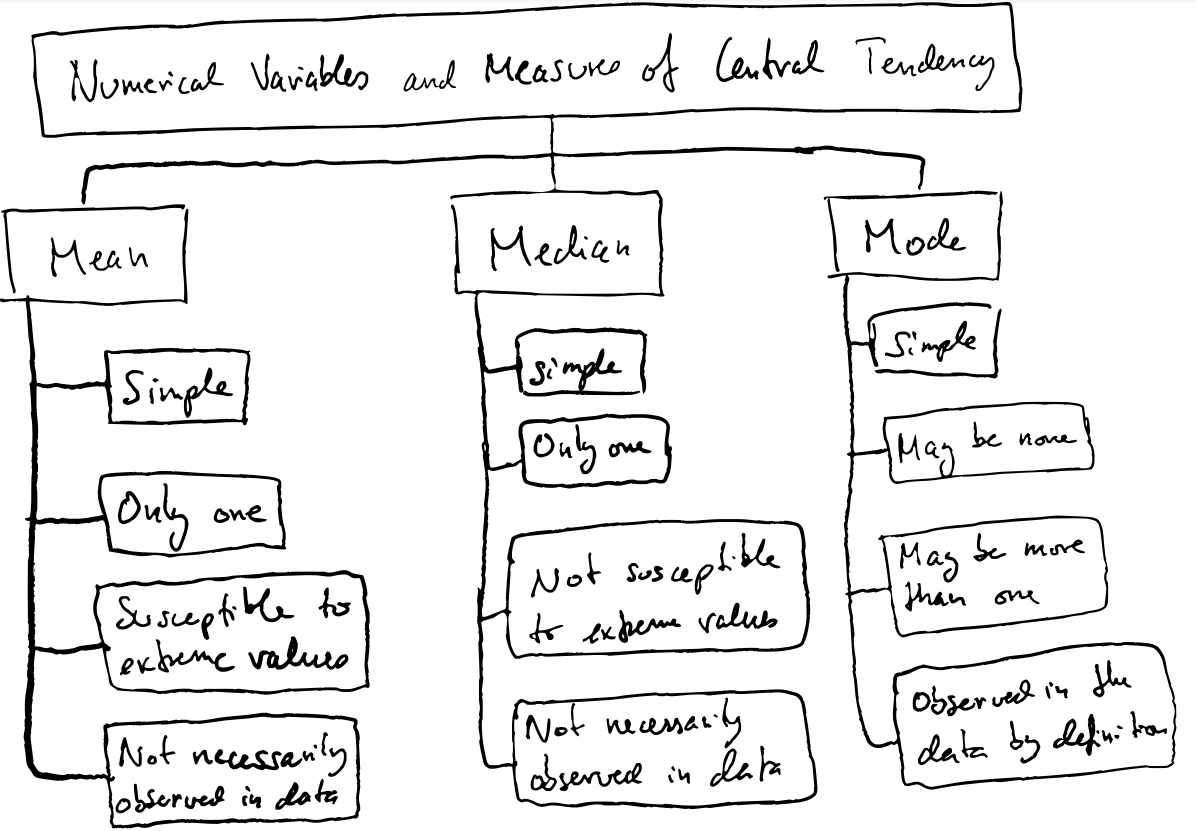 Numerical Variables and Measures of Central Tendency
Mean
Simple
Only one
Susceptible to
extreme values
Not necessarily
observed in data
Median
simple
Only one
Not susceptible
to extreme values
Not necessarily
observed in data
Mode
Simple
May be none
May be more
than one
Observed in the
data by definition